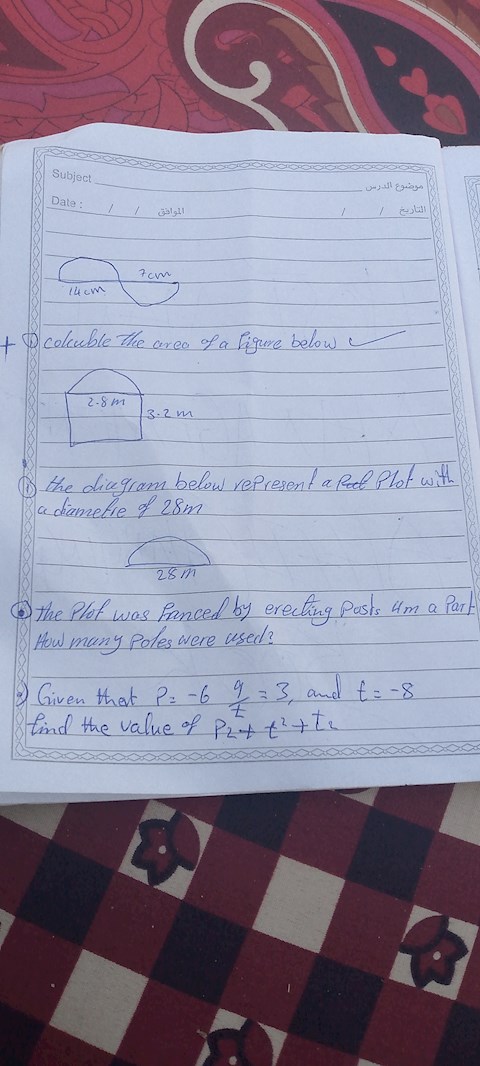 Subject موضوع الدرس
Date : / / الموافق / / التاريخ
7cm
14cm
colcuble the area of a figure below
2.8 m
3.2 m
the diagram below represent a Plot with
a diametre of 28m
28 m
the Plot was fanced by erecting Posts 4m a Part
How many Poles were used?
Given that P = -6 q/t = 3, and t = -8
find the value of P2 + t² + t2